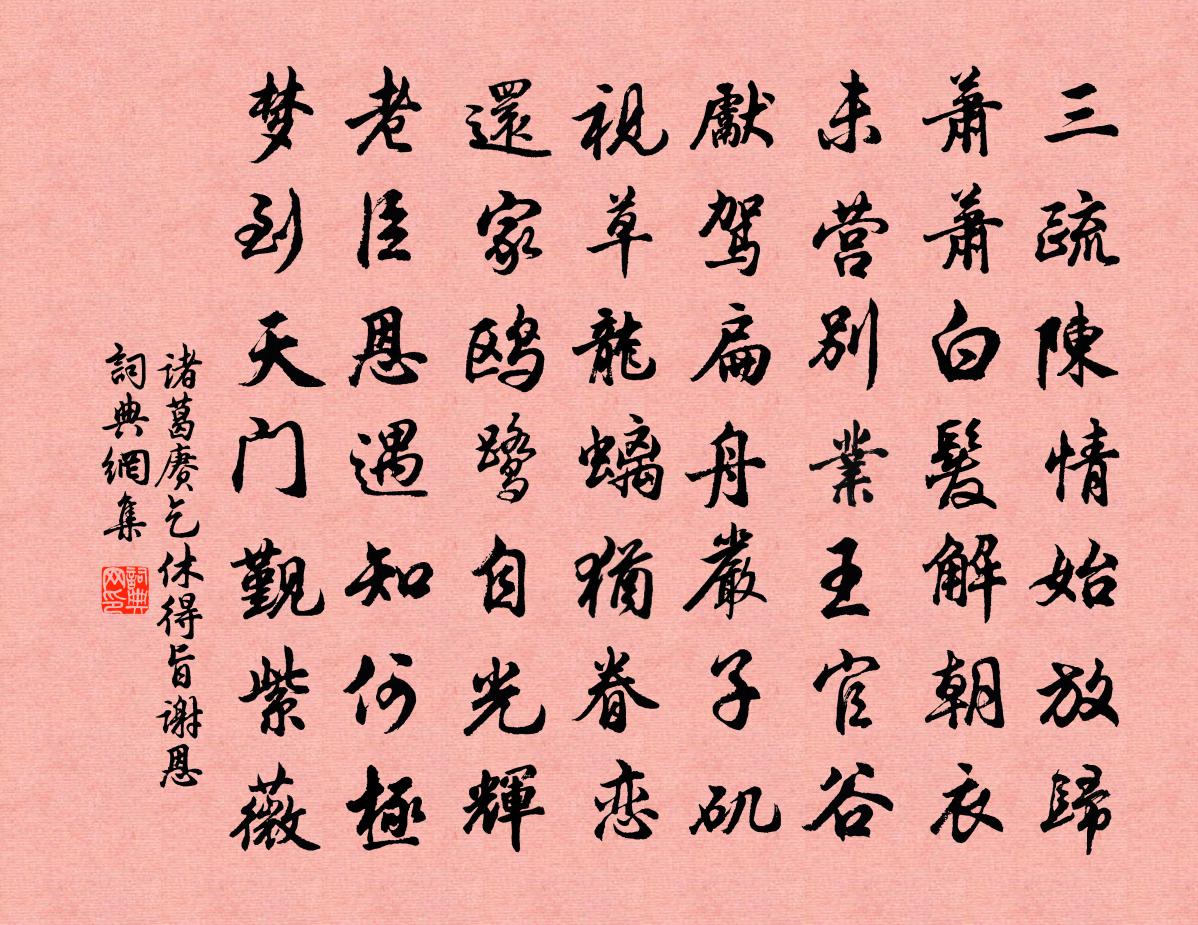 三疏陳情始放歸
蕭蕭白髮解朝衣
未营別業王官谷
獻駕扁舟嚴子矶
視草龍螭猶眷恋
還家鸥鹭自光輝
老臣恩遇知何極
梦到天门觐紫薇
诸葛赓乞休得旨谢恩
詞典網集
詞典网印